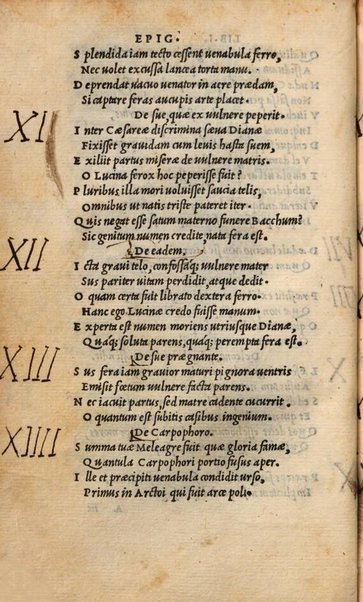 EPIG.
S plendida iam tecto cessent uenabula ferro,
Nec uolet excussa lancea torta manu.
D eprendat uacuo uenator in aere prædam,
Si captare feras aucupis arte placet.
De sue quæ ex uulnere peperit.
XI
I nter Cæsareæ discrimina sæua Dianæ
Fixisset grauidam cum leuis hasta suem,
E xiliit partus miseræ de uulnere matris.
O Lucina ferox hoc peperisse fuit?
P luribus illa mori uoluisset saucia telis,
Omnibus ut natis triste pateret iter.
Q uis negat esse satum materno funere Bacchum?
Sic genitum numen credite, nata fera est.
De eadem.
XII
I cta graui telo, confossaq; uulnere mater
Sus pariter uitam perdidit, atque dedit.
O quam certa fuit librato dextera ferro.
Hanc ego Lucinæ credo fuisse manum.
E xperta est numen moriens utriusque Dianæ,
Quaq; soluta parens, quaq; perempta fera est.
De sue prægnante.
XIII
S us fera iam grauior maturi pignora uentris
Emisit fœtum uulnere facta parens.
N ec iacuit partus, sed matre cadente cucurrit.
O quantum est subitis casibus ingenium.
De Carpophoro.
XIIII
S umma tuæ Meleagre fuit quæ gloria famæ,
Quantula Carpophori portio fusus aper.
I lle et præcipiti uenabula condidit urso,
Primus in Arctoi qui fuit arce poli.